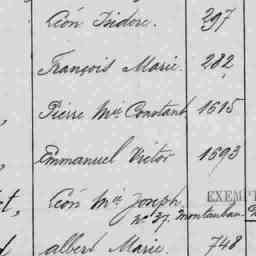 Léon Isidore. 297
François Marie. 282
Pierre Mie Constant, 1615
Emmanuel Victor 1693
Léon Mie Joseph. EXEMP
no 27. Montauban
Albert Marie. 748